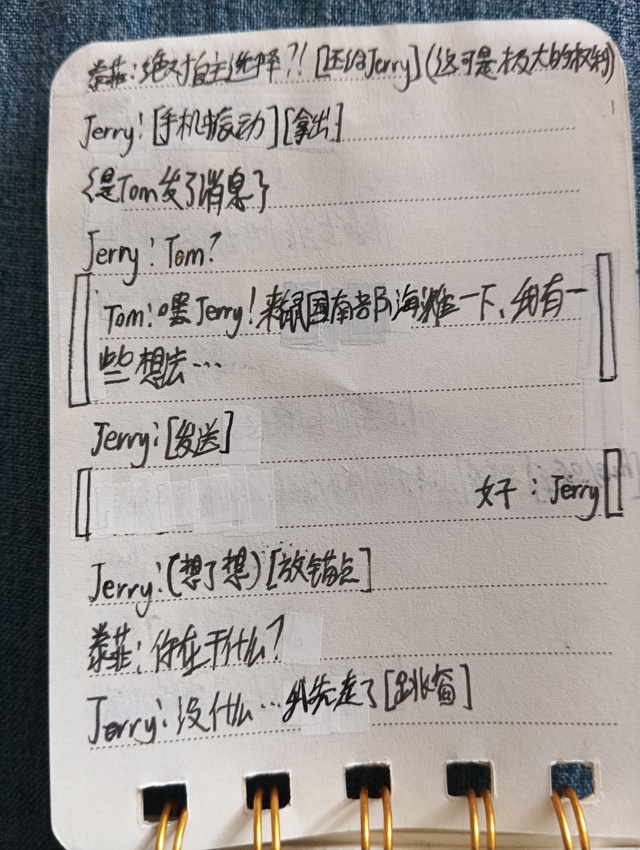 泰菲:绝对自主选择?![还给Jerry](这可是极大的权利)
Jerry![手机振动][拿出]
{是Tom发了消息了
Jerry!Tom?
Tom!嘿Jerry!来绿国南部海滩一下、我有一
些想去…
Jerry:[发送]
好:Jerry
Jerry:(想了想)[放锚点]
泰菲:你在干什么?
Jerry:没什么…我先走了[跳窗]